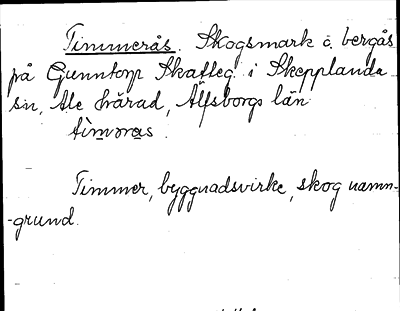 Timmerås. Skogsmark o. bergås
på Gunntorp Skatteg. i Skepplanda
sn, Ale härad, Älfsborgs län
Timmer, byggnadsvirke, skog namn-
-grund.